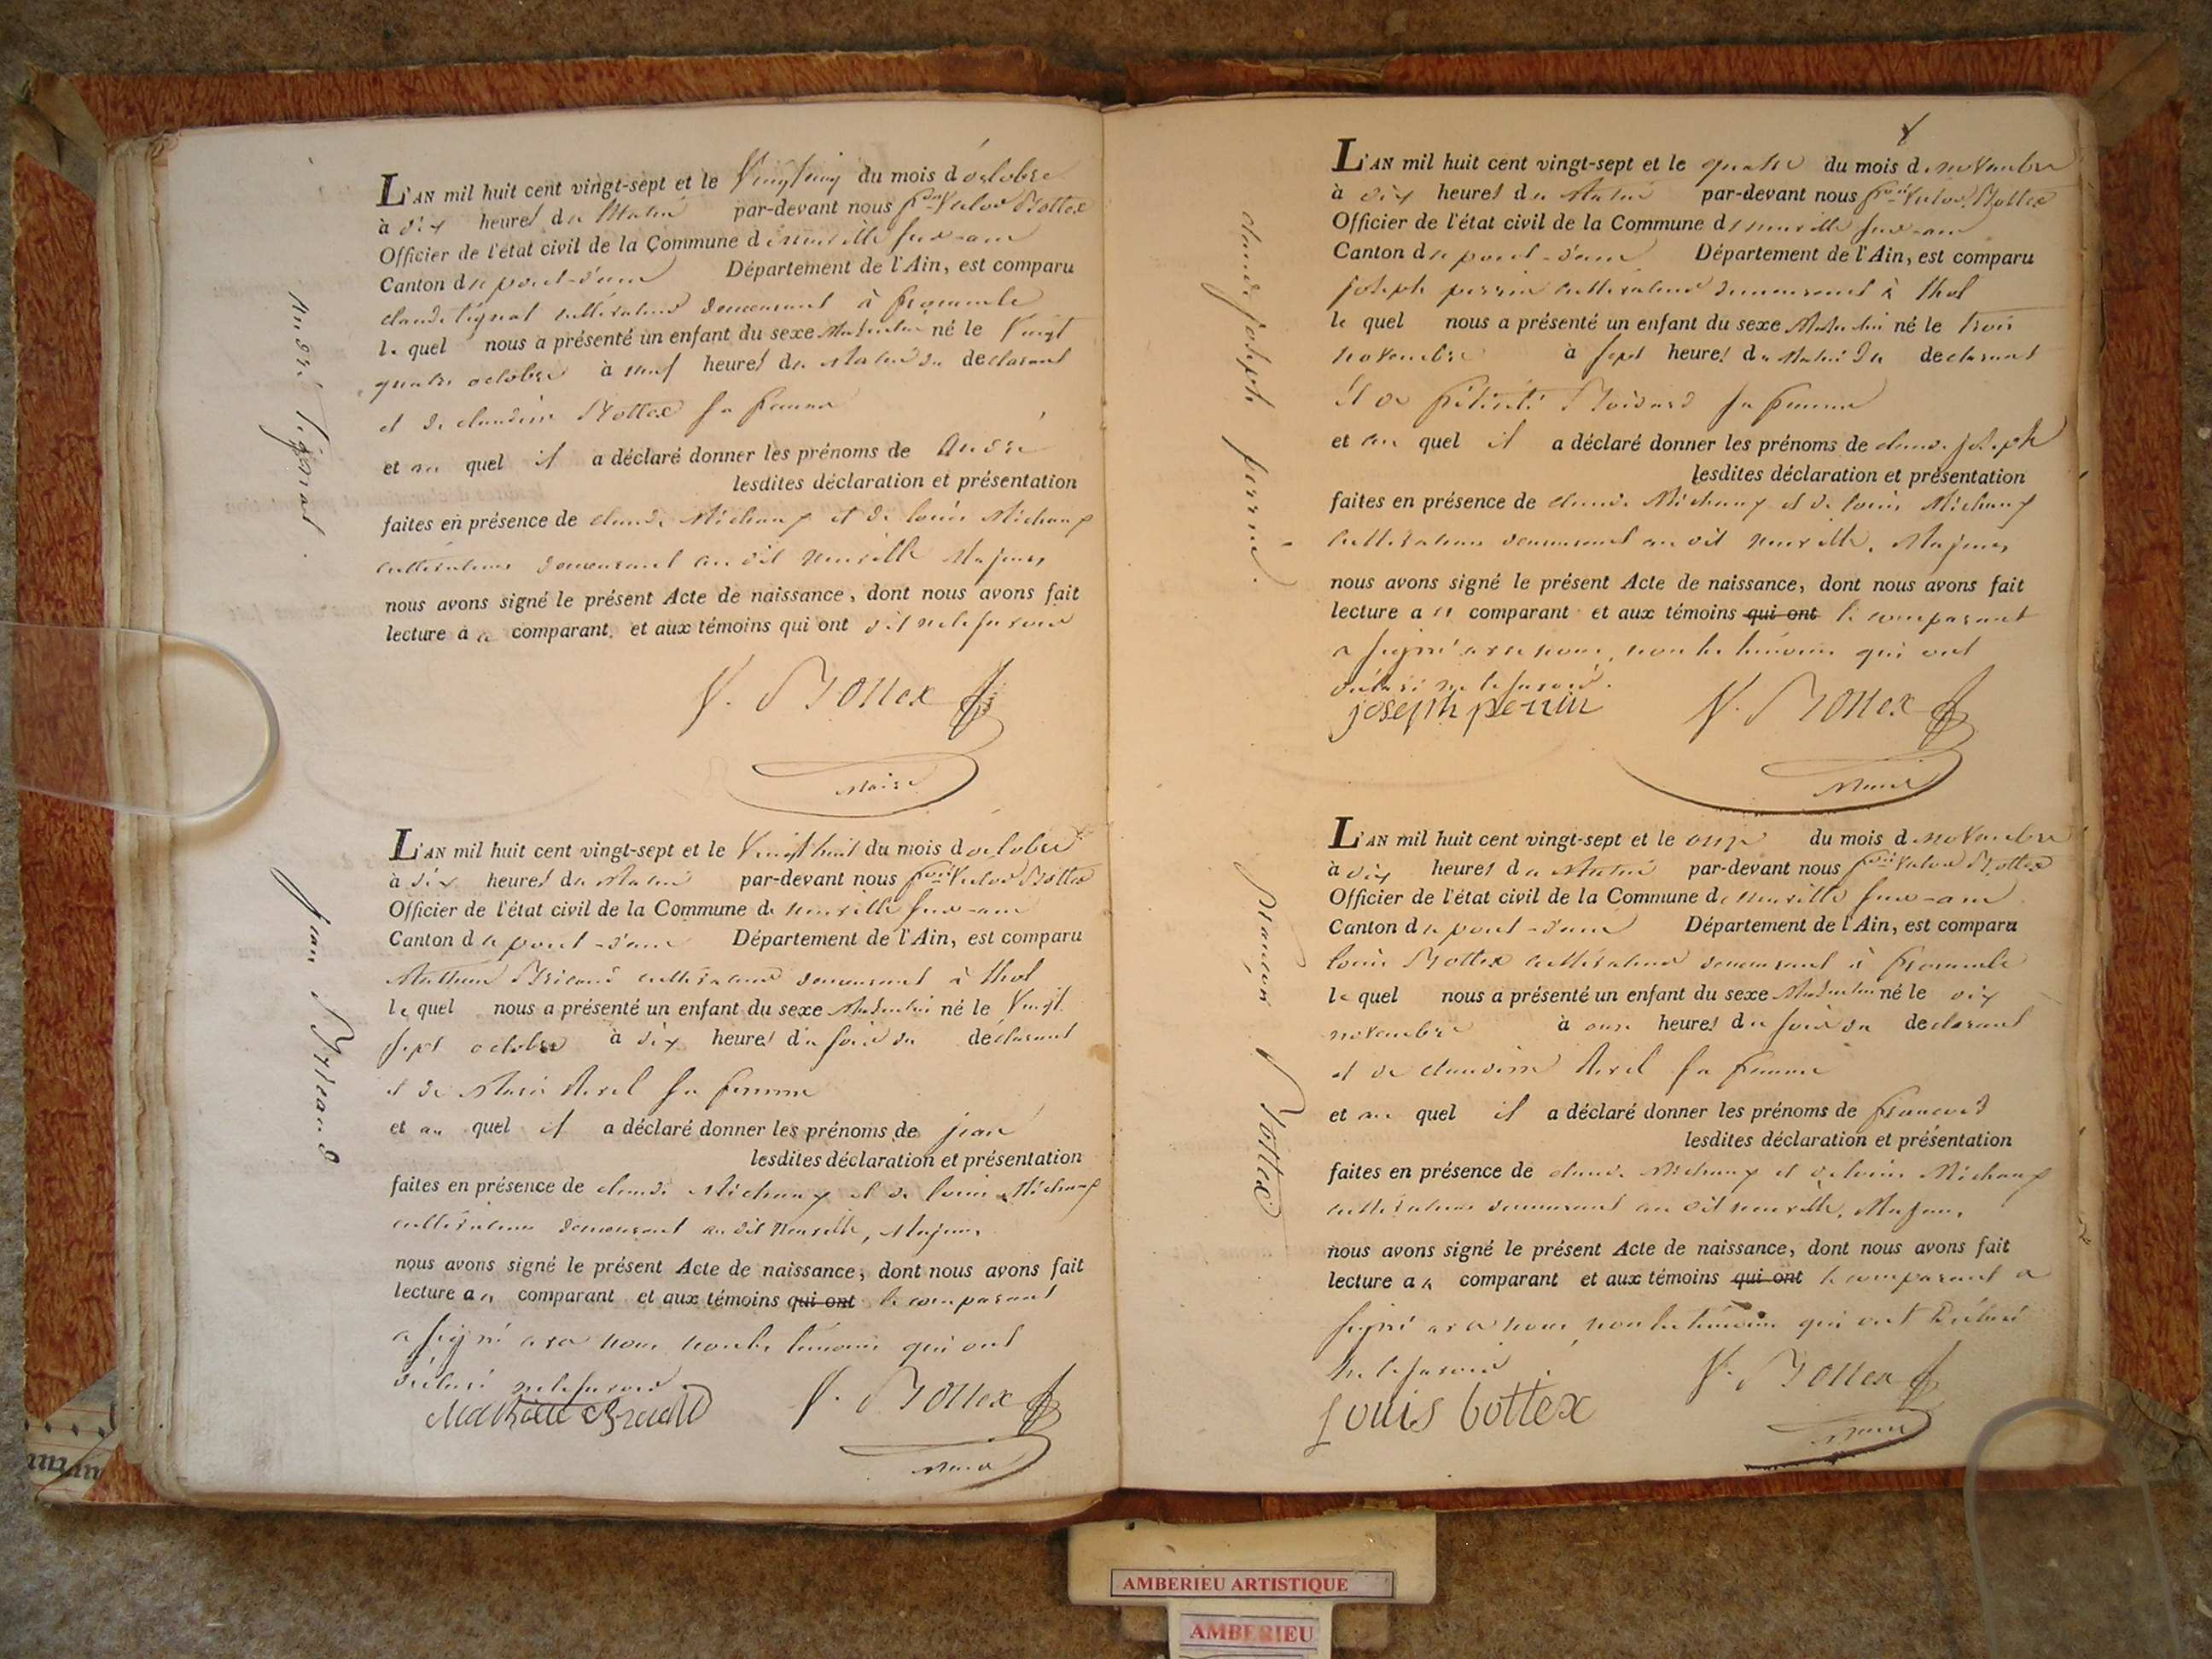 André Tignat.
L'AN mil huit cent vingt-sept et le Vingt cinq du mois d'octobre
à dix heures du Matin par-devant nous Victor Bottex
Officier de l'état civil de la Commune de neuville sur-ain
Canton de pont-d'ain Département de l'Ain, est comparu
claude tignat cultivateur demeurant à fromente
le quel nous a présenté un enfant du sexe Masculin né le Vingt
quatre octobre à neuf heures du Matin du declarant
et de claudine Bottex sa femme
et au quel il a déclaré donner les prénoms de André
lesdites déclaration et présentation
faites en présence de claude Michaux et de louis Michaux
cultivateurs demeurant au dit neuville Majeurs
nous avons signé le présent Acte de naissance, dont nous avons fait
lecture à ce comparant et aux témoins qui ont dit ne le savoir
V. Bottex
Maire
jean Briand
L'AN mil huit cent vingt-sept et le Vingt huit du mois d'octobre
à dix heures du Matin par-devant nous Victor Bottex
Officier de l'état civil de la Commune de neuville sur-ain
Canton de pont-d'ain Département de l'Ain, est comparu
Mathieu Briand cultivateur demeurant à thol
le quel nous a présenté un enfant du sexe Masculin né le Vingt
sept octobre à dix heures du soir du déclarant
et de Marie Avrel sa femme
et au quel il a déclaré donner les prénoms de jean
lesdites déclaration et présentation
faites en présence de claude Michaux et de louis Michaux
cultivateurs demeurant au dit Neuville, Majeurs
nous avons signé le présent Acte de naissance, dont nous avons fait
lecture a ce comparant et aux témoins qui ont le comparant
a signé avec nous non les témoins qui ont
déclaré ne le savoir
Mathieu Briand V. Bottex
Maire
claude joseph perrin.
L'AN mil huit cent vingt-sept et le quatre du mois de novembre
à dix heures du Matin par-devant nous Victor Bottex
Officier de l'état civil de la Commune de neuville sur-ain
Canton de pont-d'ain Département de l'Ain, est comparu
joseph perrin cultivateur demeurant à thol
le quel nous a présenté un enfant du sexe Masculin né le trois
novembre à sept heures du Matin du declarant
et de félicité sa femme
et au quel il a déclaré donner les prénoms de claude joseph
lesdites déclaration et présentation
faites en présence de claude Michaux et de louis Michaux
cultivateurs demeurant au dit neuville, Majeurs
nous avons signé le présent Acte de naissance, dont nous avons fait
lecture a ce comparant et aux témoins qui ont le comparant
a signé avec nous, non les témoins qui ont
déclaré ne le savoir.
joseph perrin V. Bottex
Maire
françois Bottex
L'AN mil huit cent vingt-sept et le onze du mois de novembre
à dix heures du Matin par-devant nous Victor Bottex
Officier de l'état civil de la Commune de neuville sur-ain
Canton de pont-d'ain Département de l'Ain, est comparu
louis Bottex cultivateur demeurant à fromente
le quel nous a présenté un enfant du sexe Masculin né le dix
novembre à onze heures du soir du declarant
et de claudine Avrel sa femme
et au quel il a déclaré donner les prénoms de françois
lesdites déclaration et présentation
faites en présence de claude Michaux et de louis Michaux
cultivateurs demeurant au dit neuville, Majeurs
nous avons signé le présent Acte de naissance, dont nous avons fait
lecture a ce comparant et aux témoins qui ont le comparant a
signé avec nous, non les témoins qui ont déclaré
ne le savoir
Louis bottex V. Bottex
Maire
AMBERIEU ARTISTIQUE
AMBERIEU